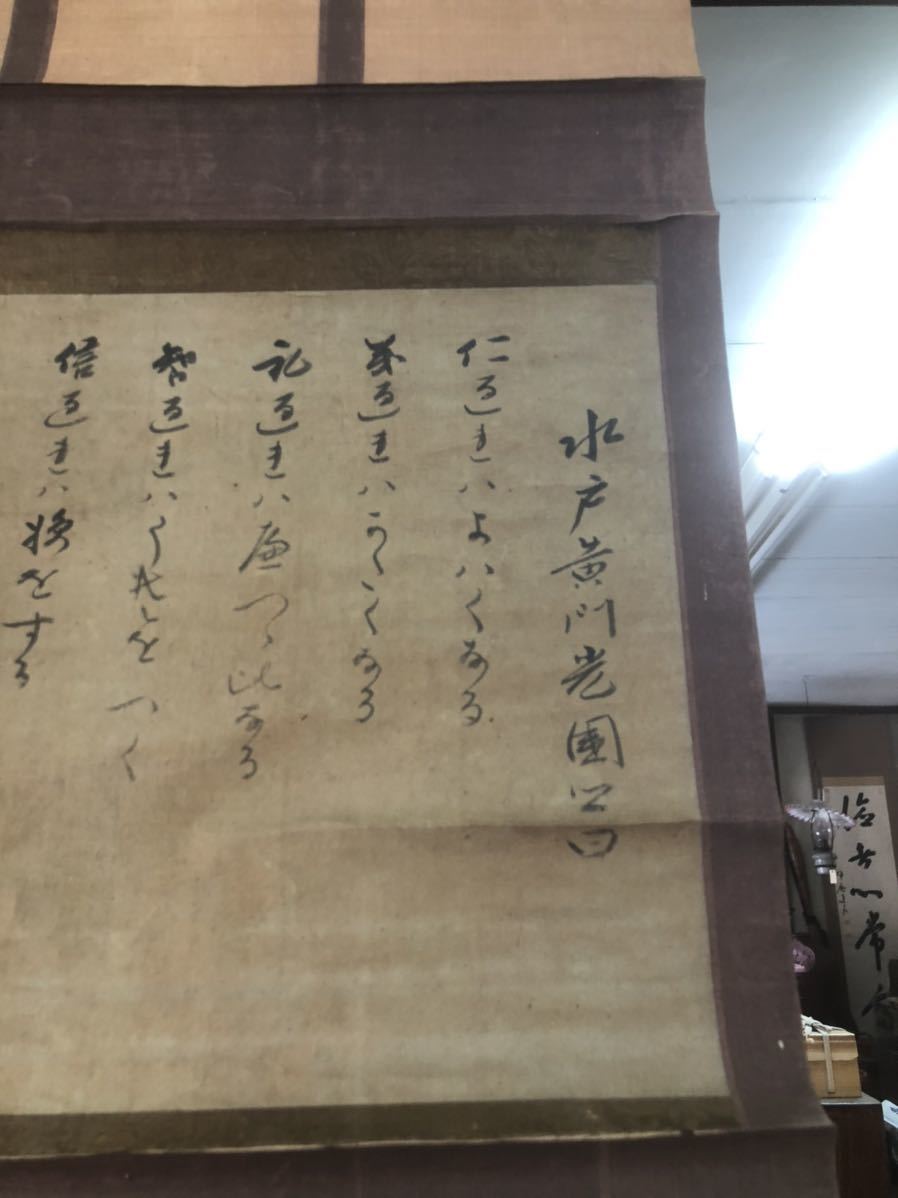 水戸黄門光圀公曰
仁過れハよハくなる
義過れハかたくなる
礼過れハ詔つらひなる
智過れハうそをつく
信過れハ損をする
常